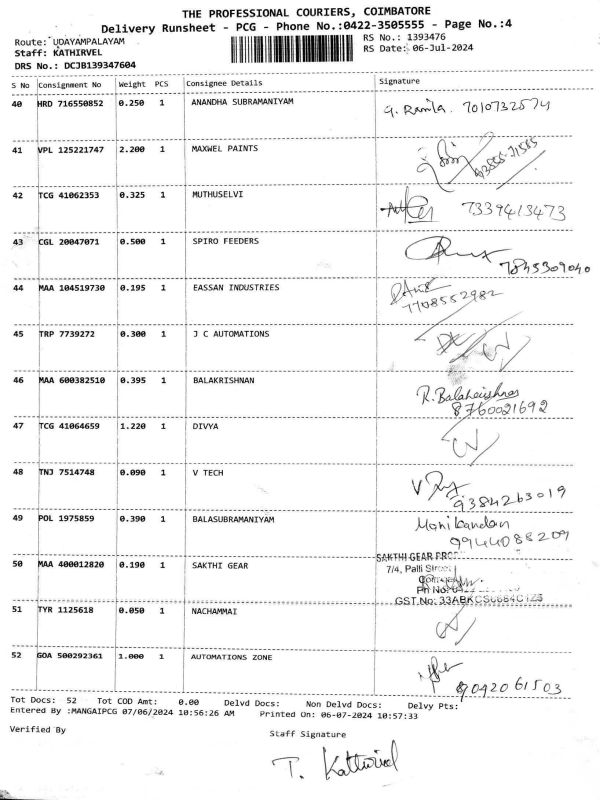 THE PROFESSIONAL COURIERS, COIMBATORE
Delivery Runsheet - PCG - Phone No.:0422-3505555 - Page No.:4
Route: UDAYAMPALAYAM
RS No.: 1393476
Staff: KATHIRVEL
RS Date: 06-Jul-2024
DRS No.: DCJB139347604
S No Consignment No Weight PCS Consignee Details Signature
40 HRD 716550852 0.250 1 ANANDHA SUBRAMANIYAM G. Ramila. 7010732574
41 VPL 125221747 2.200 1 MAXWEL PAINTS
42 TCG 41062353 0.325 1 MUTHUSELVI 7339413473
43 CGL 20047071 0.500 1 SPIRO FEEDERS
7845309040
44 MAA 104519730 0.195 1 EASSAN INDUSTRIES
7708552982
45 TRP 7739272 0.300 1 J C AUTOMATIONS
46 MAA 600382510 0.395 1 BALAKRISHNAN R. Balakrishnan
8760021692
47 TCG 41064659 1.220 1 DIVYA
48 TNJ 7514748 0.090 1 V TECH
9384263019
49 POL 1975859 0.390 1 BALASUBRAMANIYAM Manikandan
9944088209
50 MAA 400012820 0.190 1 SAKTHI GEAR
SAKTHI GEAR
7/4, Palli Street
Ph No:
GST.No:
51 TYR 1125618 0.050 1 NACHAMMAI
52 GOA 500292361 1.000 1 AUTOMATIONS ZONE
9042061503
Tot Docs: 52 Tot COD Amt: 0.00 Delvd Docs: Non Delvd Docs: Delvy Pts:
Entered By :MANGAIPCG 07/06/2024 10:56:26 AM Printed On: 06-07-2024 10:57:33
Verified By
Staff Signature